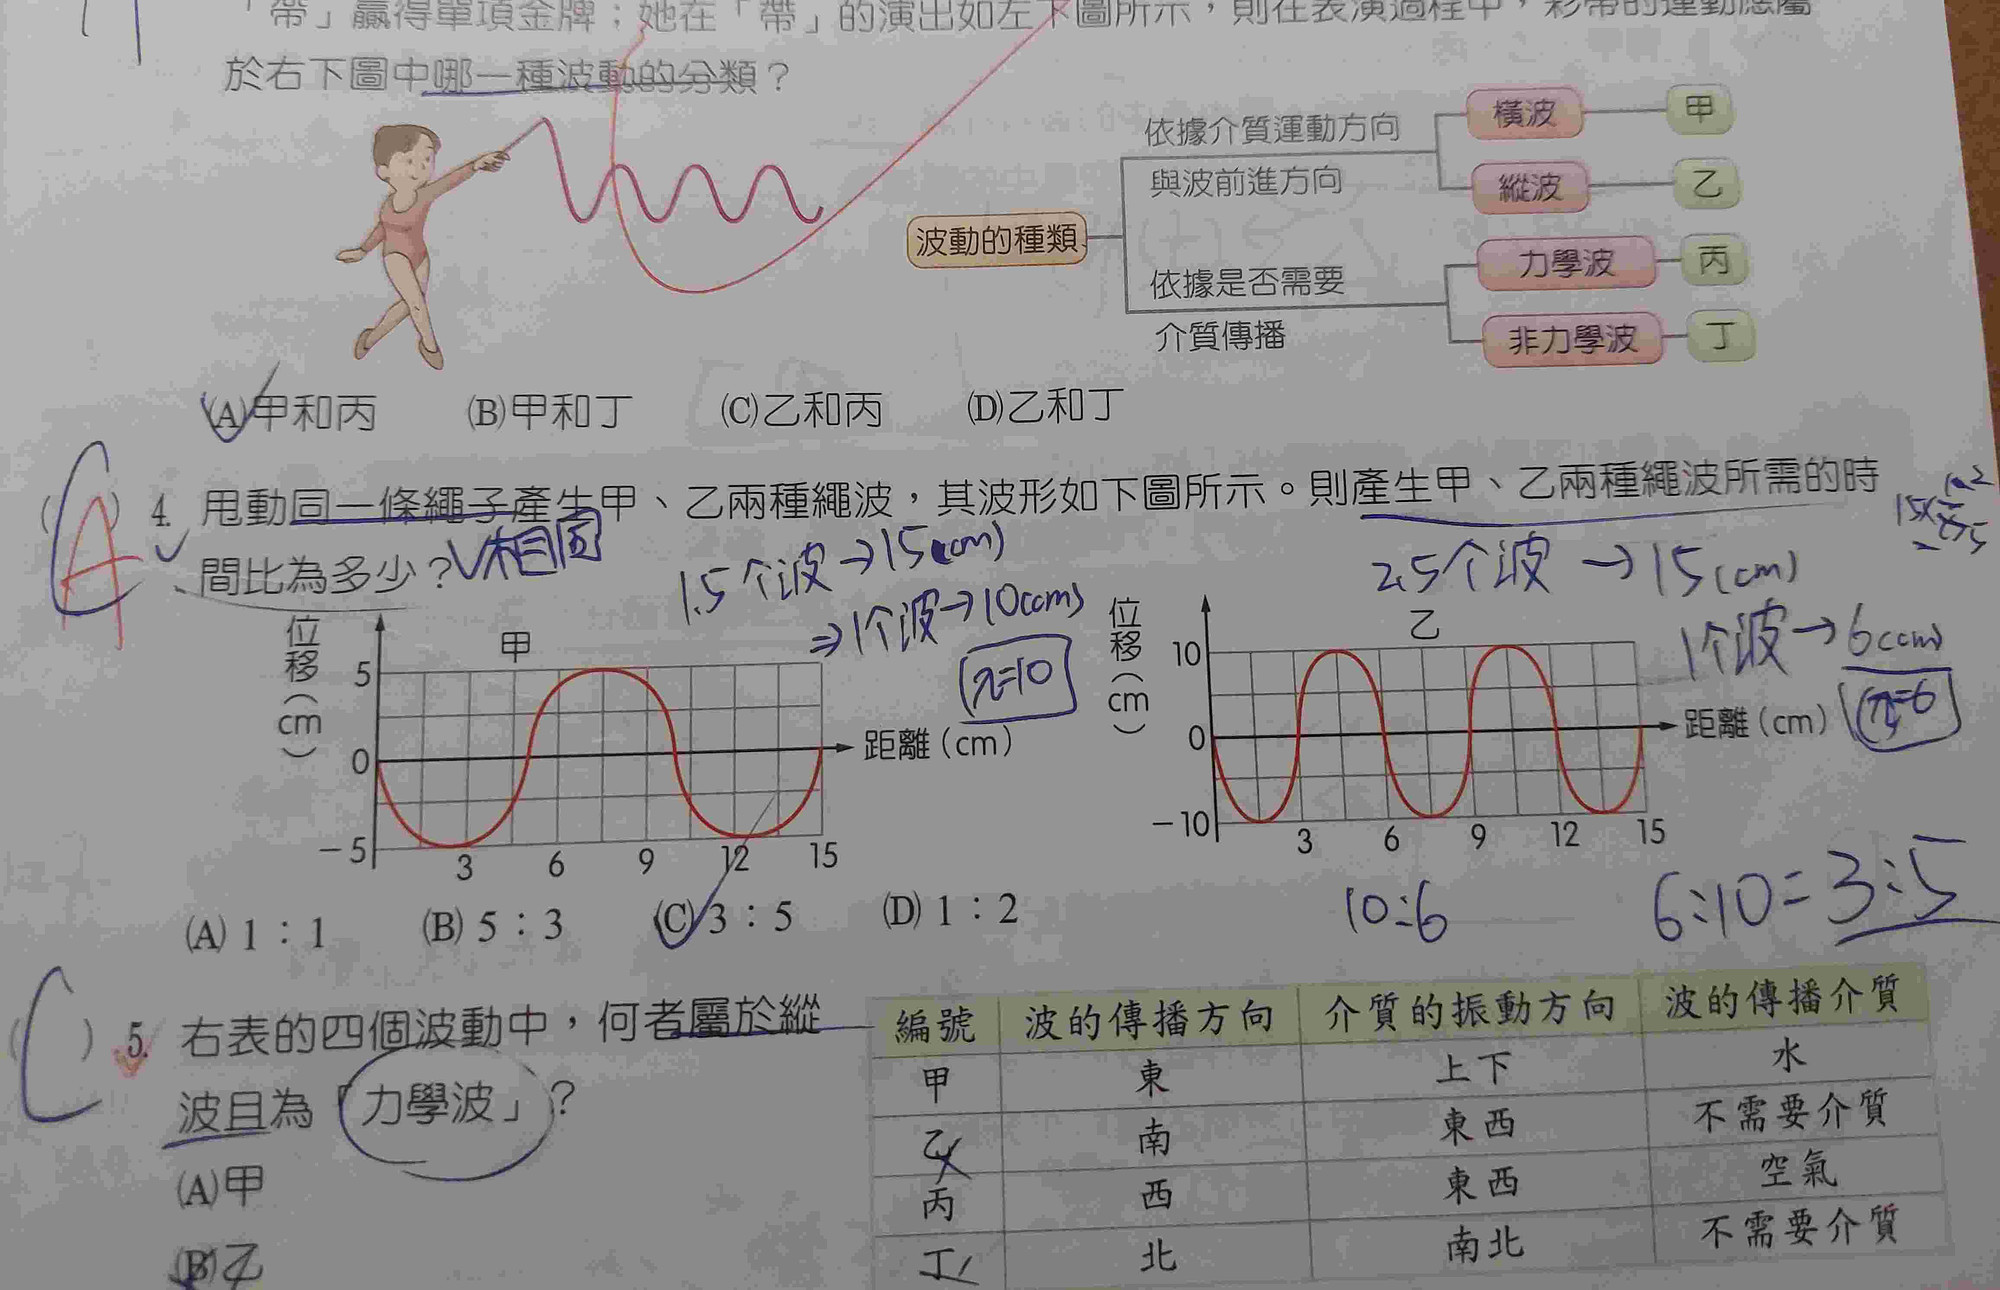 「帶」贏得單項金牌；她在「帶」的演出如左下圖所示，則在表演過程中，彩帶的運動應屬
於右下圖中哪一種波動的分類？
依據介質運動方向
與波前進方向
橫波 甲
縱波 乙
波動的種類
依據是否需要
介質傳播
力學波 丙
非力學波 丁
(A)甲和丙 (B)甲和丁 (C)乙和丙 (D)乙和丁
A
( ) 4. 甩動同一條繩子產生甲、乙兩種繩波，其波形如下圖所示。則產生甲、乙兩種繩波所需的時
間比為多少？
相同
1.5个波→15(cm)
⇒1个波→10(cm)
λ=10
2.5个波→15(cm)
1个波→6(cm)
λ=6
位移(cm)
甲
5
0
-5
3 6 9 12 15
距離(cm)
位移(cm)
乙
10
0
-10
3 6 9 12 15
距離(cm)
(A) 1：1 (B) 5：3 (C) 3：5 (D) 1：2
10:6
6:10=3:5
C
( ) 5. 右表的四個波動中，何者屬於縱
波且為「力學波」？
(A)甲
(B)乙
編號 波的傳播方向 介質的振動方向 波的傳播介質
甲 東 上下 水
乙 南 東西 不需要介質
丙 西 東西 空氣
丁 北 南北 不需要介質